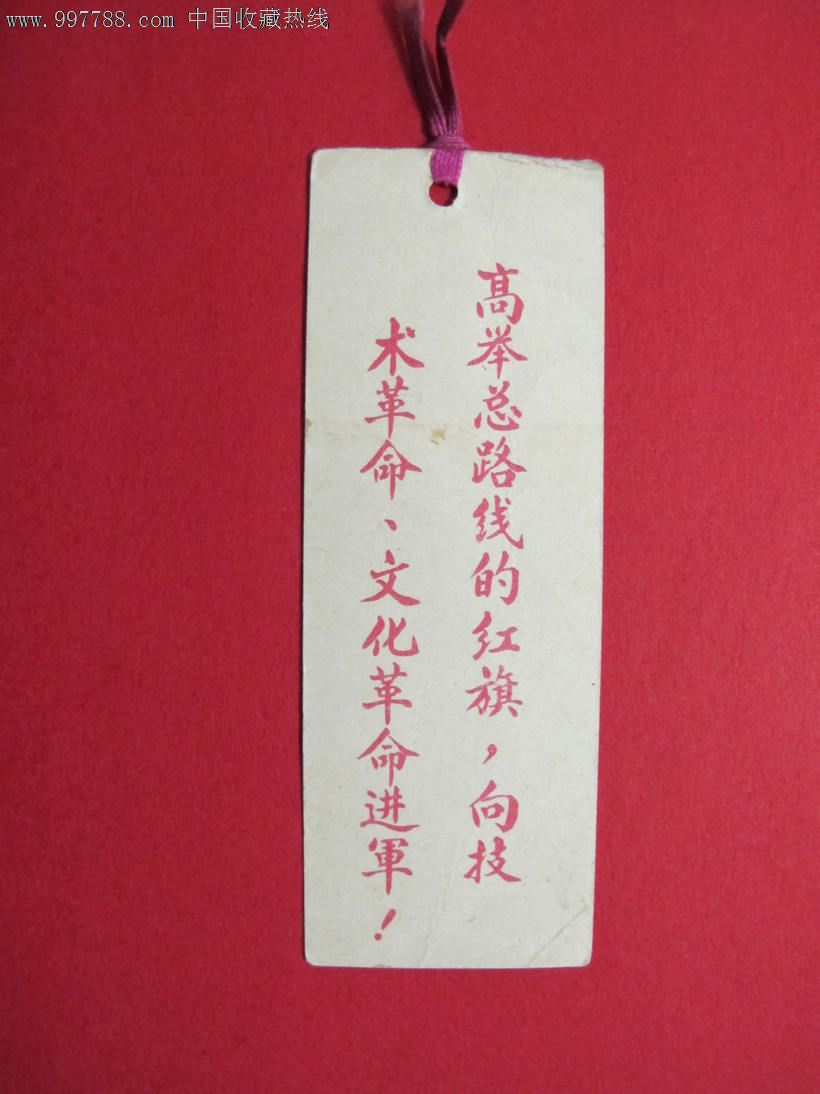 www.997788.com 中国收藏热线
高举总路线的红旗，向技
术革命、文化革命进軍！